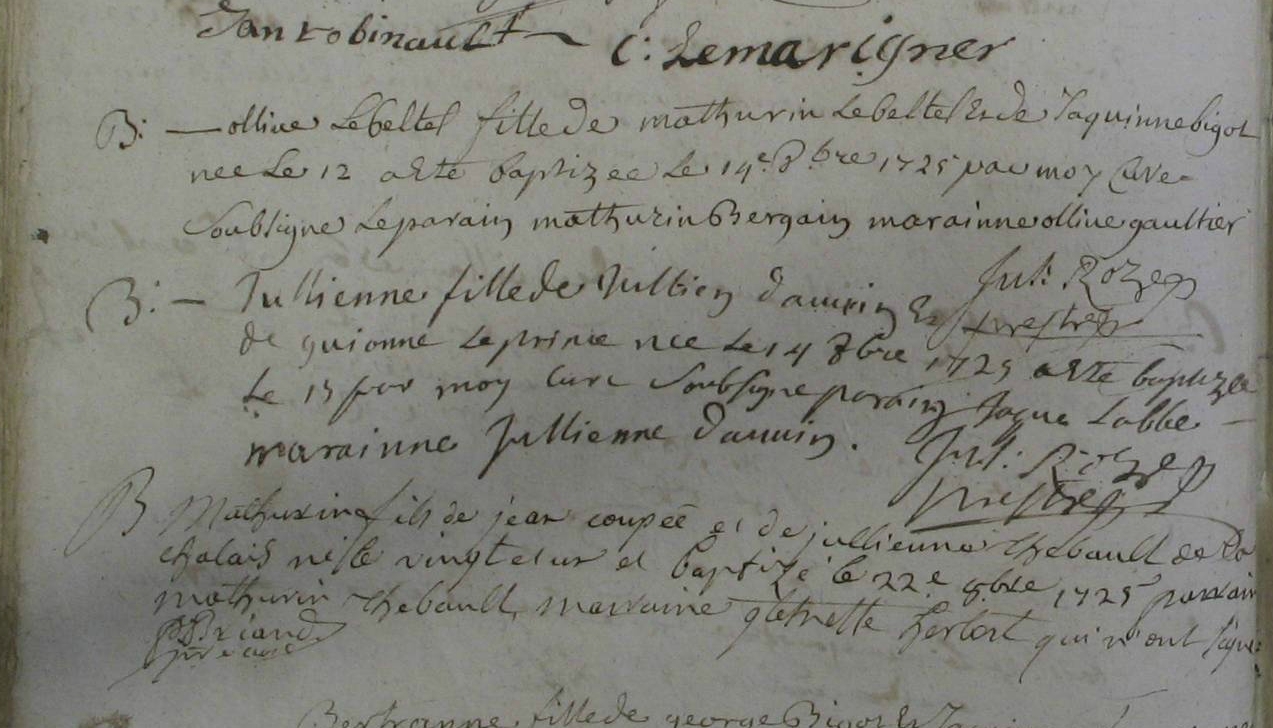 Jan robinault C: Lemarigner
B: — ollive Lebeltel fille de mathurin Lebeltel Et de Jaquinne bigot
nee Le 12 a Este baptizee Le 14e 8bre 1725 par moy Cure
Soubsigne Le parain mathurin Bergain marainne ollive gaultier
Jul: Rozes
prestre
B: — Jullienne fille de Jullien dauvin Et
de guionne Le prince nee Le 14 8bre 1725 a Este baptizee
Le 15 par moy Cure Soubsigne parain Jaque Labbe —
marainne Jullienne dauvin.
Jul: Rozes
prestre
B Mathurin fils de jean coupeé et de jullienne thebault de la
chalais né le vingt et un et baptizé le 22e 8bre 1725 parrain
mathurin thebault, marraine herbert qui n'ont signé
Briand
Bertranne fille de george Bigot Et